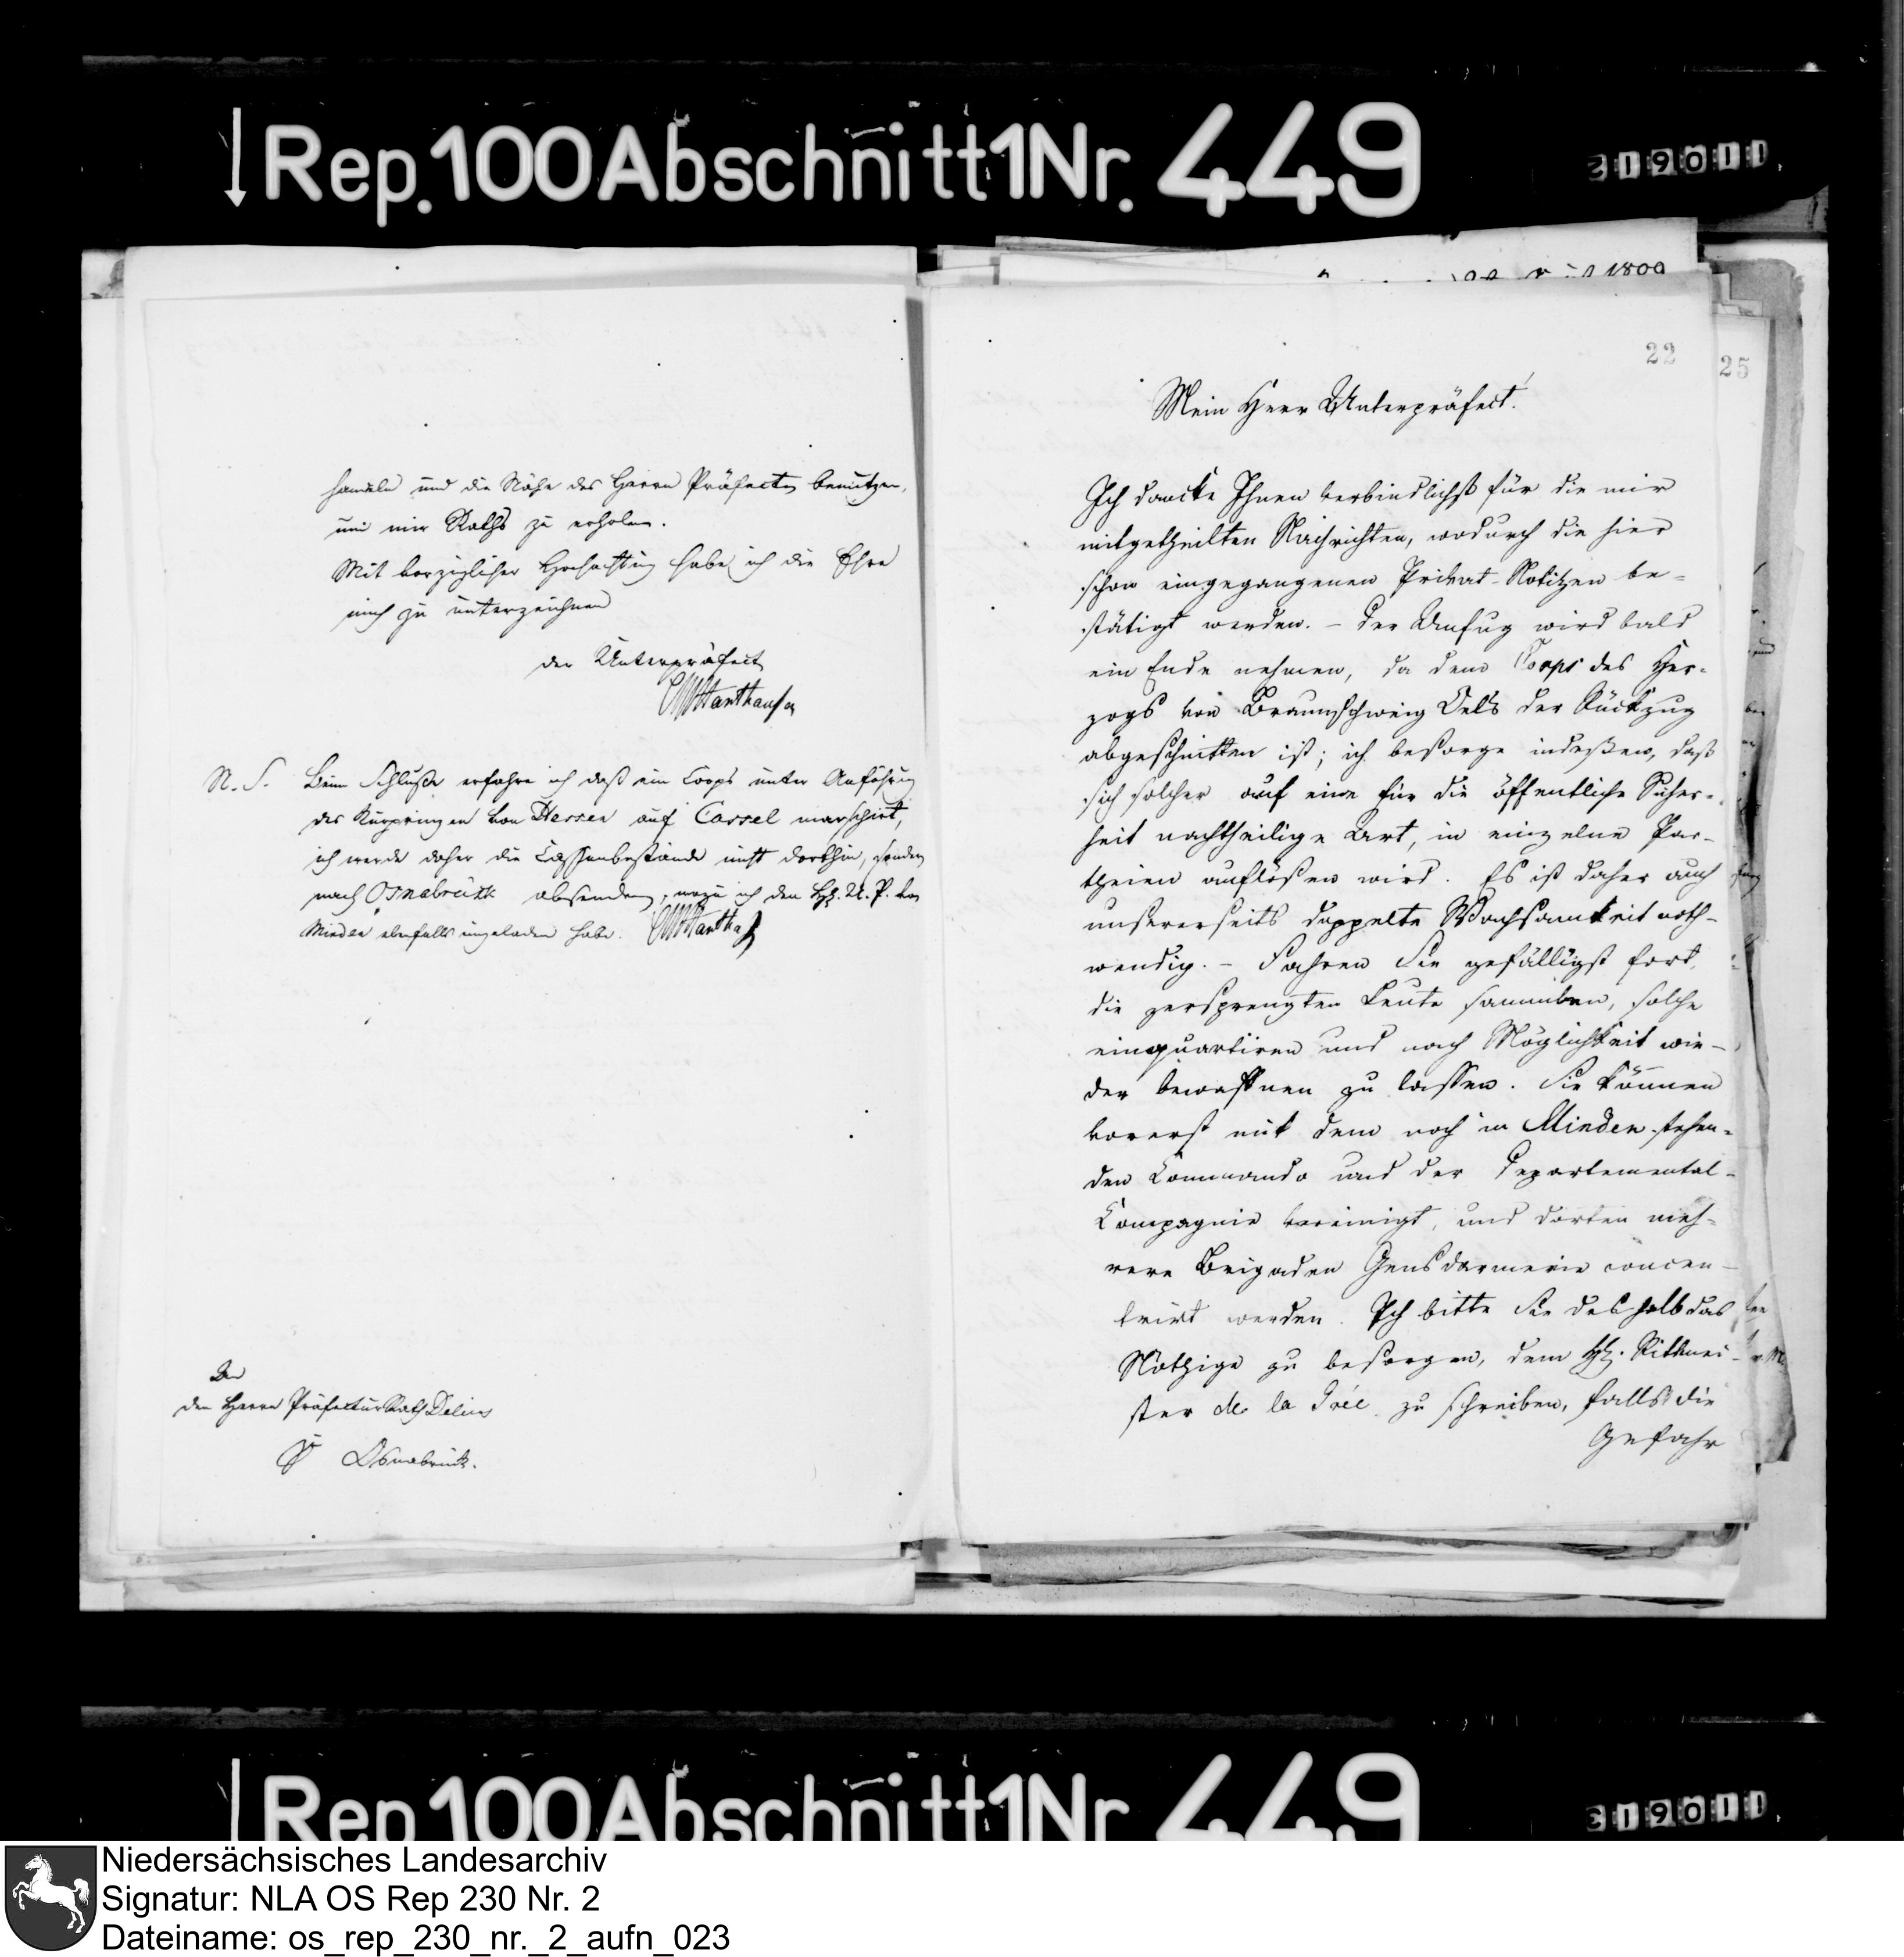 Rep. 100 Abschnitt 1 Nr. 449
31901
1809
22
25
handeln und die Nähe des Herrn Präfecten benutzen,
um mir Raths zu erholen.
Mit vorzüglicher Hochachtung habe ich die Ehre
mich zu unterzeichnen
der Unterpräfect
N. S. Beim Schluße erfahre ich daß ein Corps unter Anführung
des Kurprinzen von Hessen auf Cassel marschirt,
ich werde daher die Cassenbestände nicht dorthin, sondern
nach Osnabrück absenden, wozu ich den H. U. P. von
Minden ebenfalls eingeladen habe.
An
den Herrn Präfectur Rath Delius
zu Osnabrück.
Mein Herr Unterpräfect!
Ich dancke Ihnen verbindlichst für die mir
mitgetheilten Nachrichten, wodurch die hier
schon eingegangenen Privat-Notizen be-
stätigt werden. - Der Unfug wird bald
ein Ende nehmen, da dem Corps des Her-
zogs von Braunschweig Oels der Rückzug
abgeschnitten ist; ich besorge indeßen, daß
sich solcher auf eine für die öffentliche Sicher-
heit nachtheilige Art, in einzelne Par-
theien auflößen wird. Es ist daher auch
unsererseits doppelte Wachsamkeit noth-
wendig. - Fahren Sie gefälligst fort,
die zersprengten Leute sammlen, solche
einquartiren und nach Möglichkeit wie-
der bewaffnen zu lassen. Sie können
vorerst mit dem noch in Minden stehen-
den Commando und der Departemental-
Compagnie vereinigt, und dorten meh-
rere Brigaden Gensdarmerie concen-
trirt werden. Ich bitte Sie deshalb das
Nöthige zu besorgen, dem H. Rittmei-
ster de la Grée zu schreiben, falls die
Gefahr
Rep. 100 Abschnitt 1 Nr. 449
31901
Niedersächsisches Landesarchiv
Signatur: NLA OS Rep 230 Nr. 2
Dateiname: os_rep_230_nr._2_aufn_023